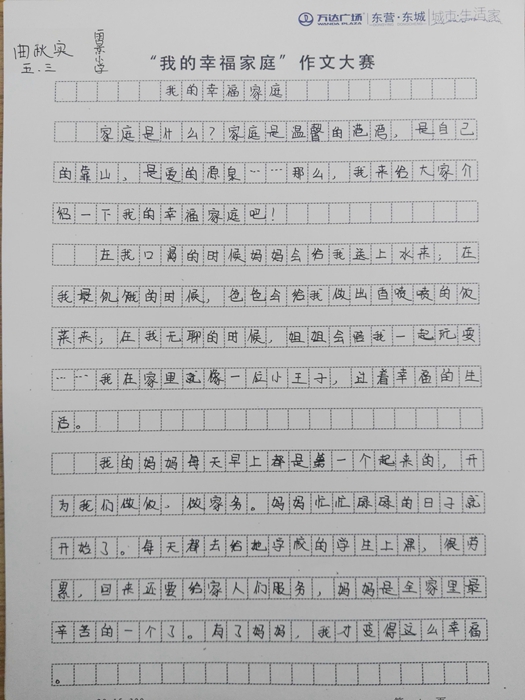 万达广场 WANDA PLAZA 东营·东城 城市·生活家
曲秋实 五.三
“我的幸福家庭”作文大赛
我的幸福家庭
家庭是什么？家庭是温馨的港湾，是自己
的靠山，是爱的源泉……那么，我来给大家介
绍一下我的幸福家庭吧！
在我口渴的时候妈妈会给我送上水来；在
我最饥饿的时候，爸爸会给我做出香喷喷的饭
菜来；在我无聊的时候，姐姐会陪我一起玩耍
……我在家里就像一位小王子，过着幸福的生
活。
我的妈妈每天早上都是第一个起来的，开
为我们做饭、做家务。妈妈忙忙碌碌的日子就
开始了。每天都去给她学校的学生上课，很劳
累，回来还要给家人们服务，妈妈是全家里最
辛苦的一个了。有了妈妈，我才变得这么幸福
。